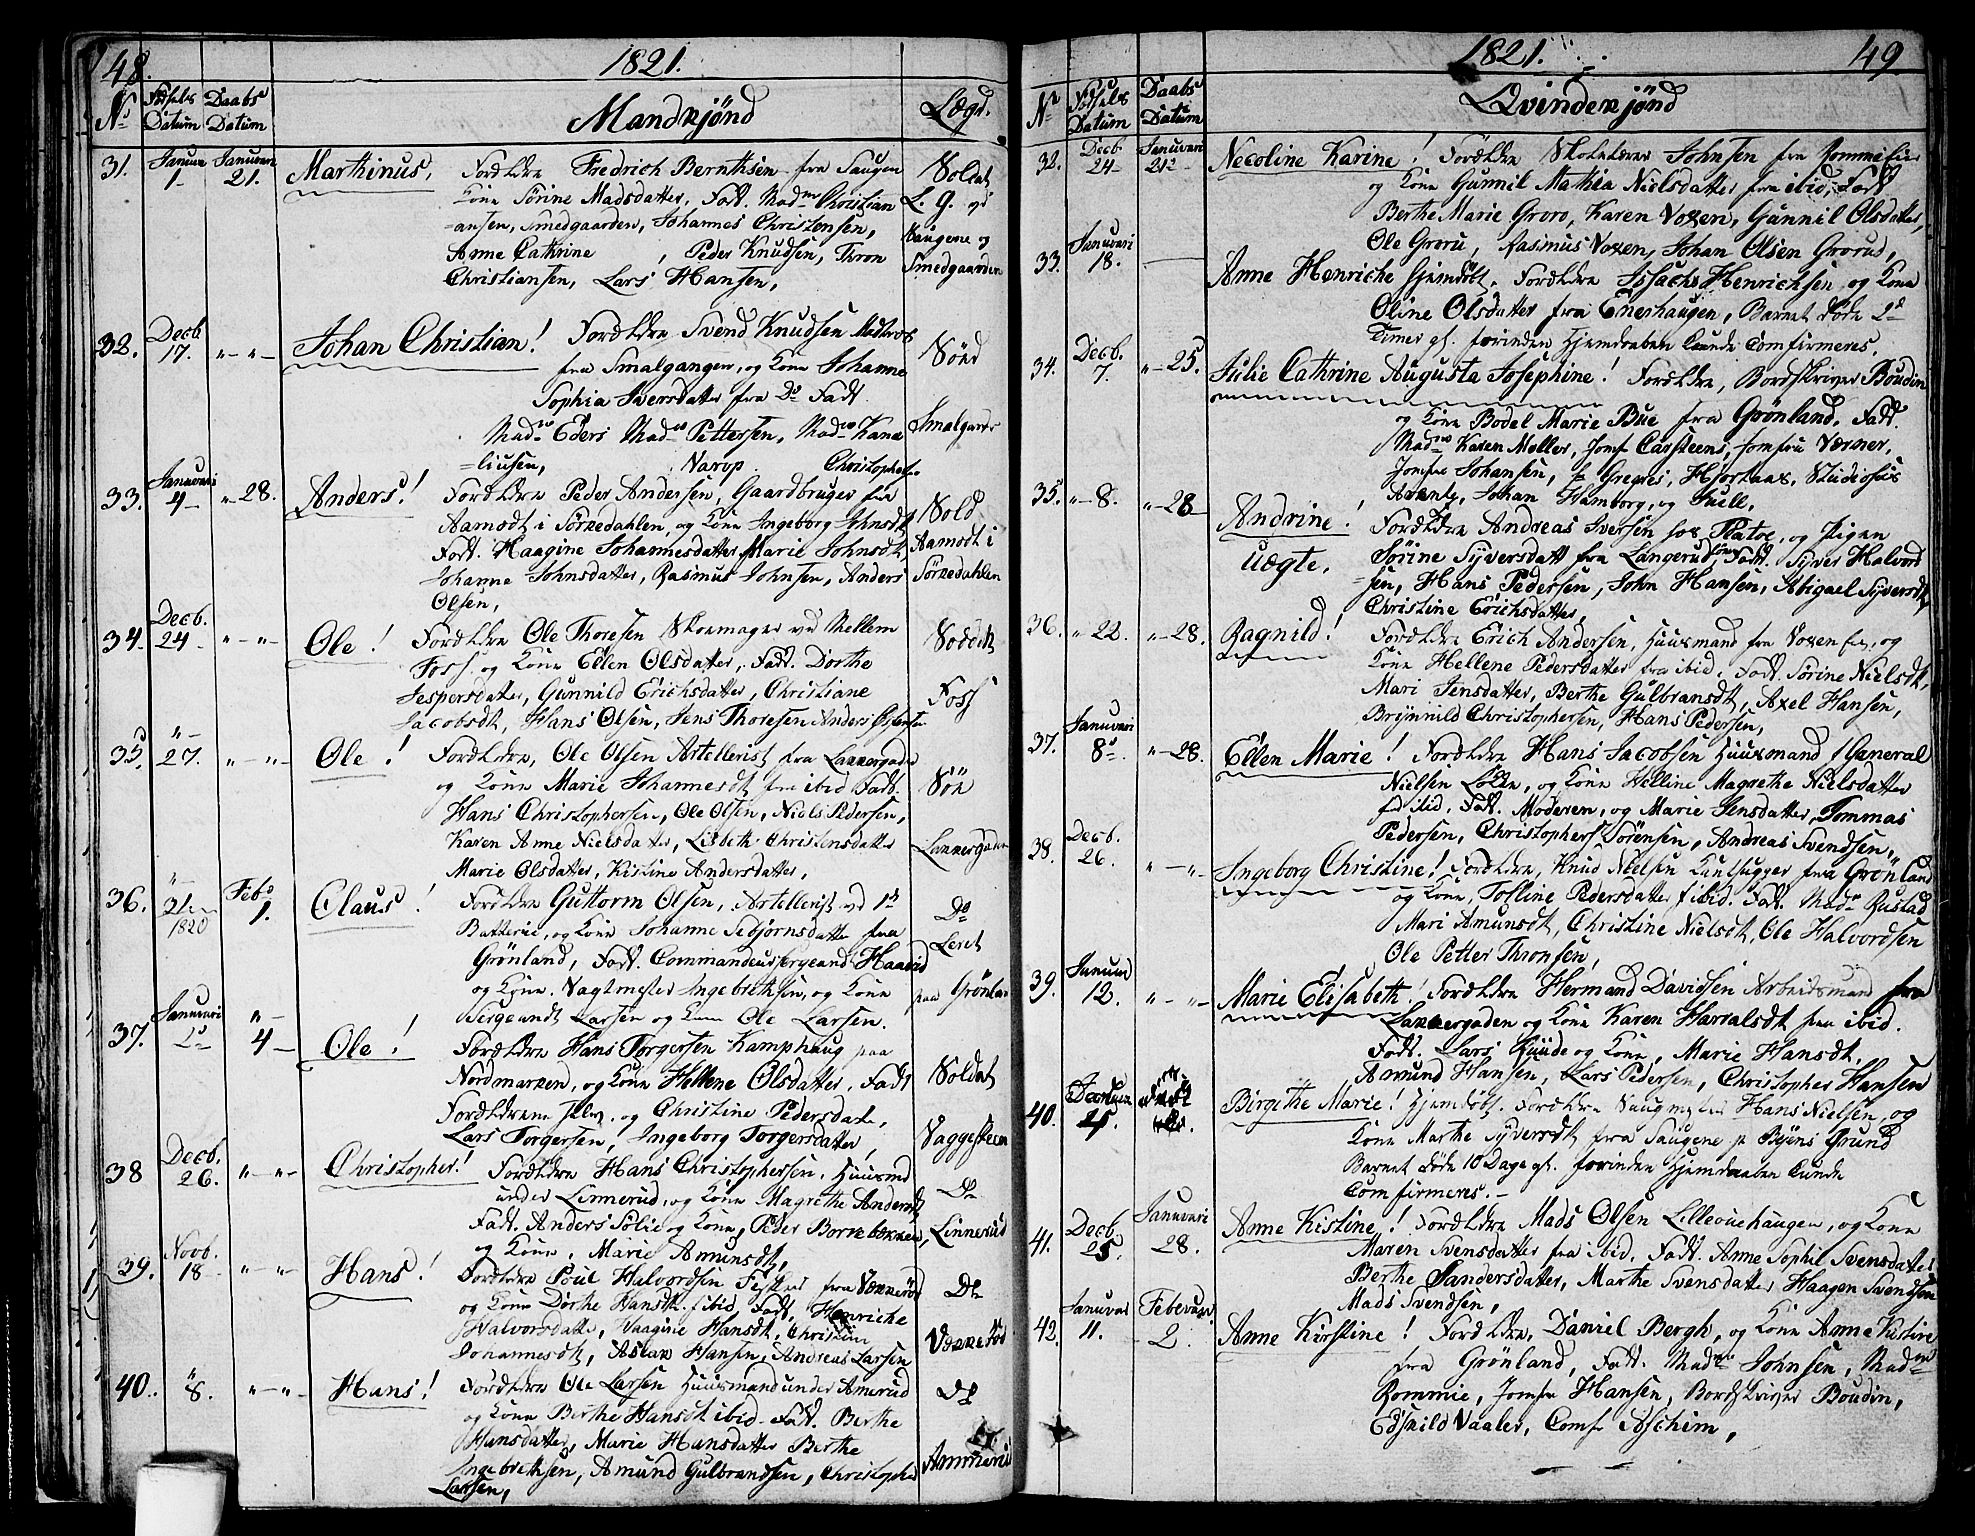 48.
1821.
No Fødsels Datum Daabs Datum Mandkjønd Lægd.
31. Januar 1- Januari 21. Marthinus, Forældre Fredrich Bernthsen fra Haugen Soldat
Kone Sørine Madsdatter, Fadd. Mad Christian L. G. og
=ansen, Smedgaarden, Johannes Christensen, Haugene og
Anne Cathrine , Peder Knudsen, Thron Smedgaarden
Christiansen, Lars Hansen,
32. Decb. 17. "-"- Johan Christian! Forældre Svend Knudsen Madtros Sønd
fra Smalgangen, og Kone Johanne
Sophia Iversdatter fra Do Fadd. Smalgangen
Mad Eders Mad Pettersen, Mad Kane
=liusen, Narop. Christophersen
33. Januari 4- "-28. Anders! Forældre Peder Andersen, Gaardbruger fra Sold
Aamodt i Sørkedahlen, og Kone Ingeborg Johnsdt Aamodt i
Fadd. Haagine Johannesdatter, Marie Johnsdt, Sørkedahlen
Johanne Johnsdatter, Rasmus Johnsen, Anders
Olsen,
34. Decb. 24- "-"- Ole! Forældre Ole Thoresen Skomager ved Mellem
Foss. og Kone Ellen Olsdatter, Fadd. Dorthe
Jespersdatter, Gunnild Erichsdatter, Christiane Foss
Jacobsdt, Hans Olsen, Jens Thoresen Anders
35. "- 27. "-"- Ole! Forældre, Ole Olsen Artellerist fra Lakkergaden
og Kone Marie Johannesdt fra ibid Fadd. Sør
Hans Christophersen, Ole Olsen, Niels Pedersen,
Karen Anne Nielsdatter, Lisbeth Christensdatter Lakkergaden
Marie Olsdatter, Kistine Andersdatter,
36. "- 31 1820 Feb. 1. Claus! Forældre Guttorm Olsen, Artellerist ved 1st Do
Batterie, og Kone Johanne Tedjørnsdatter fra Leret
Grønland, Fadd. Commandeusergeand Haavid
og Kone. Vagtmester Ingebrethsen, og Kone paa Grønland
Sergeandt Larsen og Ole Larsen.
37. Januari "- 4- Ole! Forældre Hans Torgersen Kamphaug paa
Nordmarken, og Kone Hellene Olsdatter, Fadd Soldat
Forældrene selv. og Christine Pedersdatter,
Lars Torgersen, Ingeborg Torgersdatter,
38 Decb. 26. "-"- Christopher! Forældre Hans Christophersen, Huusmd
under Linnerud, og Kone Magrethe Andersdt Do
Fadd. Anders Sølie og Kone, Peder Borrebækken, Linnerud
og Kone, Marie Amundsdt,
39. Novb. 18 "-"- Hans! Forældre Poul Halvordsen Fisker fra Vækkerøe Do
og Kone Dorthe Hansdt. f ibid, Fadd, Henriche
Halvorsdatter, Haagine Hansdt, Christine
Johannesdt, Aslak Hansen, Andreas Larsen
40. "8. "-"- Hans! Forældre Ole Larsen Huusmand under Amerud Do
og Kone Berthe Hansdt ibid. Fadd. Berthe
Hansdatter, Marie Hansdatter Berthe
Ingebrethsen, Amund Gulbrandsen, Christopher Ammerud
Larsen,
1821.
49.
No Fødsels Datum Daabs Datum Qvindekjønd
32. Decb 24- Januari 21 Necoline Karine! Forældre Skolelærer Johnsen fra
og Kone Gunnil Mathia Nielsdatter fra ibid, Fadd
Berthe Marie Groro, Karen Voxen, Gunnil Olsdatter,
Ole Groru, Rasmus Voxen, Johan Olsen Grorud,
33. Januari 18. Anne Henriche hjemdøbt. Forældre Issach Henrichsen, og Kone
Oline Olsdatter fra Enerhaugen, Barnet døde 2
Timer gl. forinden Hjemdaaben kunde Comfirmeres.
34. Decb. 7. "-25. Julie Cathrine Augusta Josephine! Forældre, Bordskriver Boudin
og Kone Bodel Marie Bue fra Grønland, Fadd.
Mad Karen Møller, Jomf Carsteens, Jomfru Værner,
Jomfru Johansen, Gregris, Hjortaas, Studiosus
Arentz, Johan Hamborg, og Juell.
35. "-8. "-28 Andrine! Forældre Andreas Iversen hos Platoe, og Pigen
Uægte. Sørine Syversdatt fra Langerud, Fadd. Syver Halvord
=sen, Hans Pedersen, John Hansen, Abigael Syversdt,
Christine Erichsdatter,
36. "22. "-28. Ragnild! Forældre Erich Andersen, Huusmand fra Voxen, og
Kone Hellene Pedersdatter fra ibid. Fadd. Sørine Nielsdt,
Mari Jensdatter, Berthe Gulbransdt, Axel Hansen,
Brynnild Christophersen, Hans Pedersen,
37. Januari 8. "-28. Ellen Marie! Forældre Hans Jacobsen Huusmand f General
Nielsen Løkke, og Kone Helline Magrethe Nielsdatter
f ibid. Fadd. Moderen, og Marie Jensdatter, Tommas
Pedersen, Christophers Sørensen, Andreas Svendsen,
38. Decb. 26. "-"- Ingeborg Christine! Forældre, Knud Nielsen fra Grønland
og Kone, Tolline Pedersdatter f ibid. Fadd. Mad Rustad
Mari Amunsdt, Christine Nielsdt, Ole Halvordsen
Ole Petter Thronsen,
39. Januar 12. "-"- Marie Elisabeth! Forældre Hermand Davidsen Arbeidsmand fra
Lakkergaden og Kone Karen Harralsdt fra ibid.
Fadd. Lars Huude og Kone, Marie Hansdt,
Amund Hansen, Lars Pedersen, Christopher Hansen
40. Birgithe Marie! hjemdøbt. Forældre Hans Nielsen, og
Kone Marthe Syversdt fra Haugene p Byens Grund
Barnet døde 10 Dage gl. forinden Hjemdaaben kunde
Comfirmeres.-
41. Decb. 25. Januari 28. Anne Kistine! Forældre Mads Olsen Lilleouehaugen, og Kone
Maren Svensdatter fra ibid. Fadd. Anne Sophie Svensdatter
Berthe Sandersdatter, Marthe Svensdatter Haagen Svendsen
Mads Svendsen,
42. Januari 11. Februari 2 Anne Kirstine! Forældre, Daniel Bergh, og Kone Anne Kistine
fra Grønland, Fadd. Mad Johnsen, Mad
Rommie, Jomfr Hansen, Bordskriver Boudin,
Edsnild Vaaler, Comf Aschim,